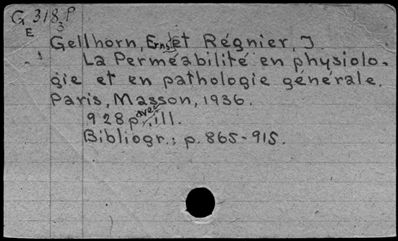 G 318 P
3
E
Gellhorn, Ernst et Régnier, J
La Perméabilité en physiolo-
gie et en pathologie générale.
Paris, Masson, 1936.
928 p. avec ill.
Bibliogr.: p. 865-915.